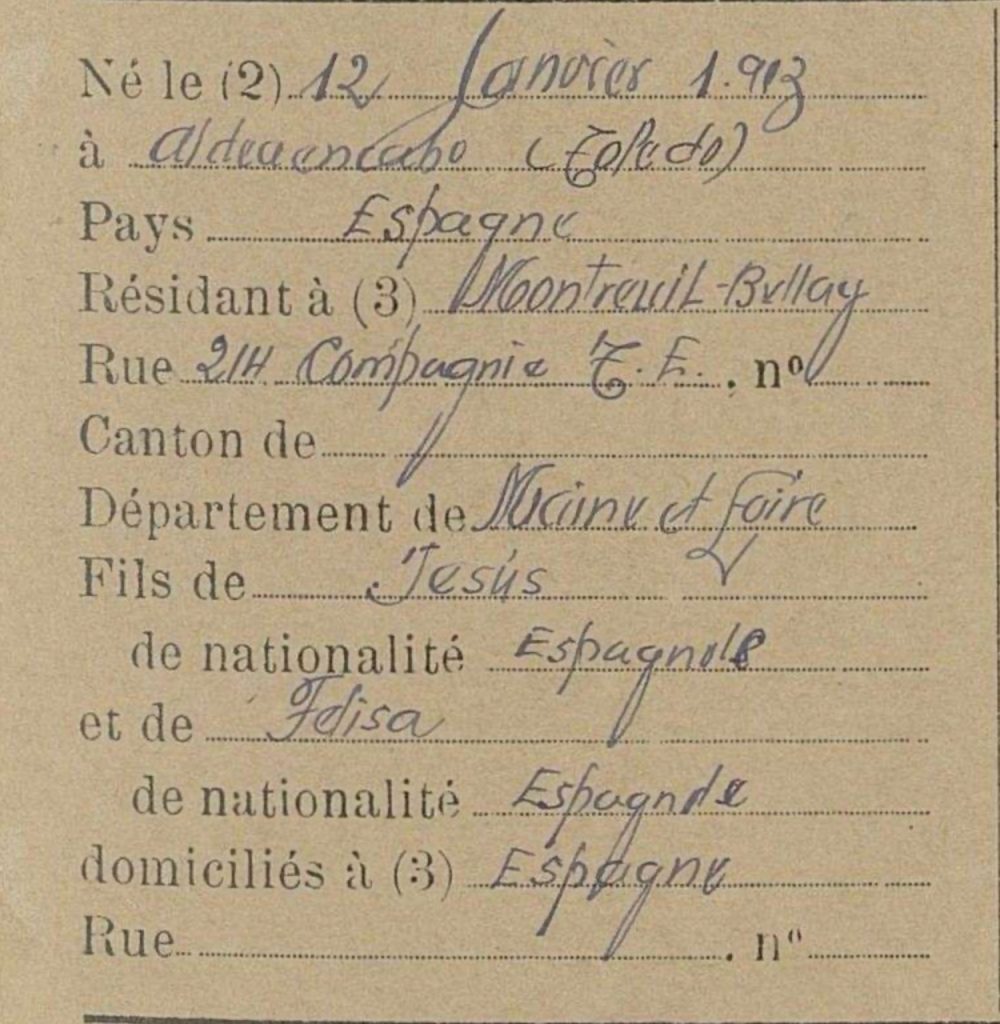 Né le (2) 12 Janvier 1.913
à Aldeaencabo (Toledo)
Pays Espagne
Résidant à (3) Montreuil-Bellay
Rue 214 Compagnie T.E. . nº
Canton de
Département de Maine et Loire
Fils de Jesús
de nationalité Espagnole
et de Felisa
de nationalité Espagnole
domiciliés à (3) Espagne
Rue . nº